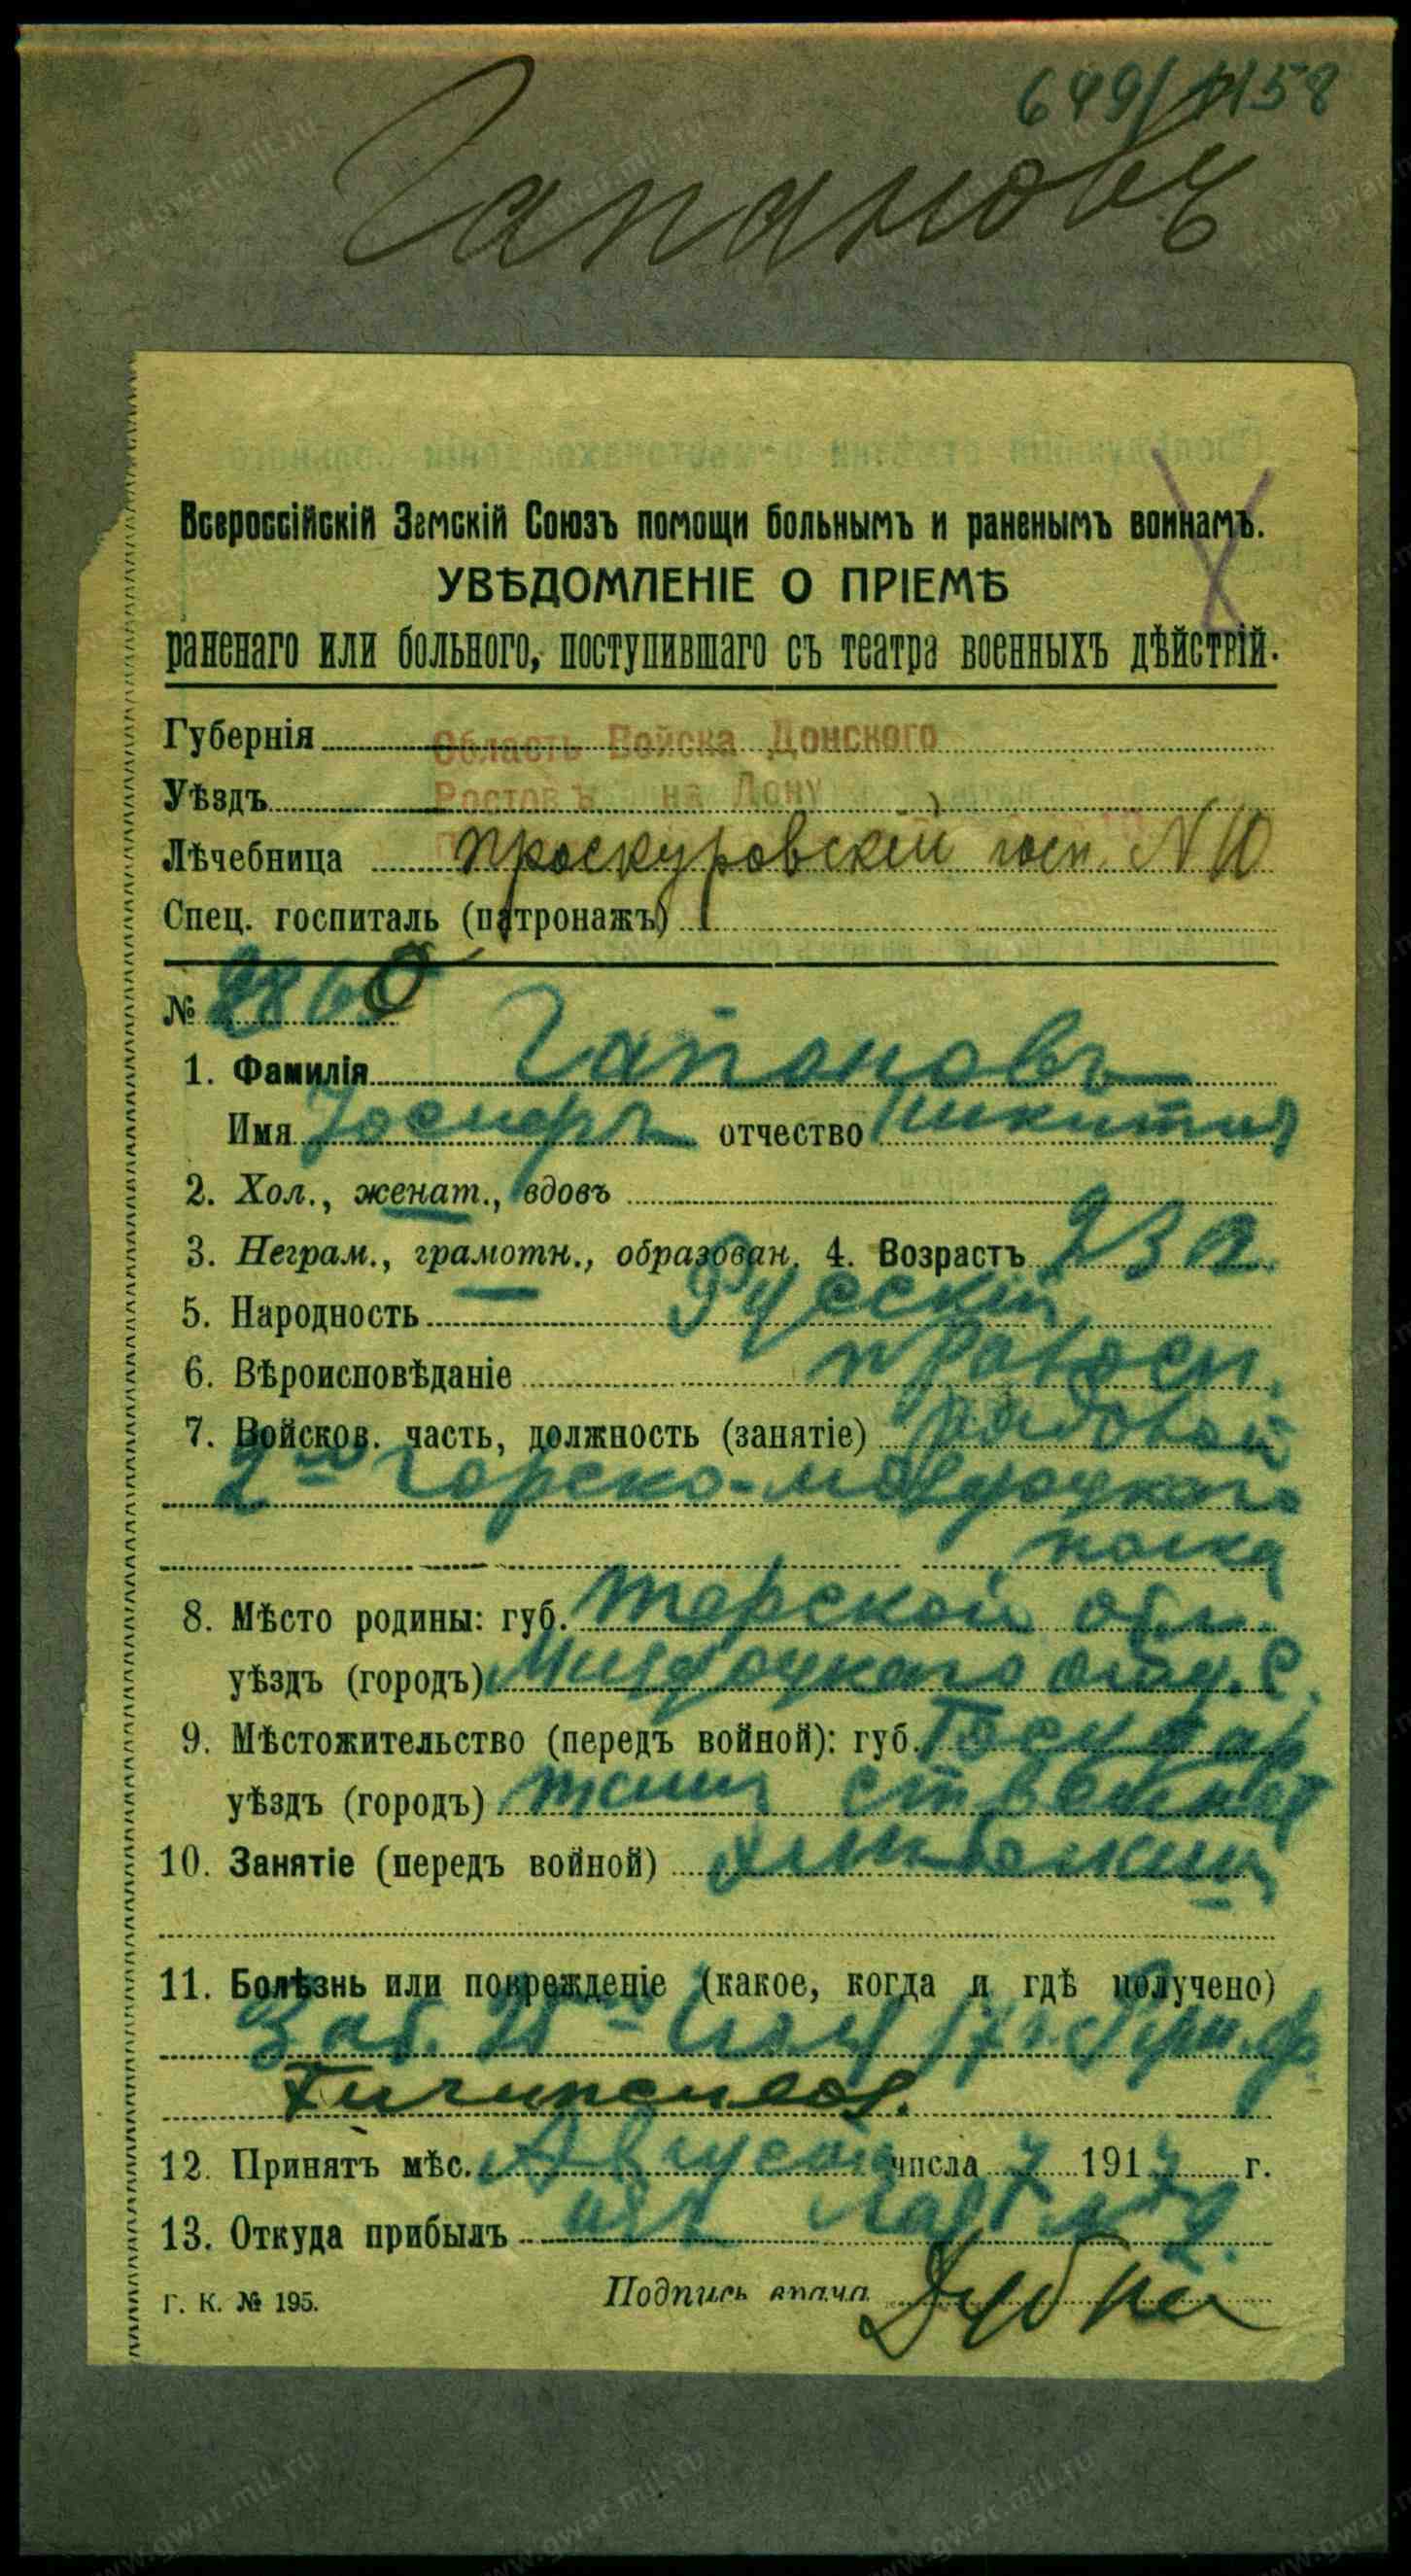 649/1158
Гапановъ
Всероссійскій Земскій Союзъ помощи больнымъ и раненымъ воинамъ.
УВѢДОМЛЕНІЕ О ПРІЕМѢ
раненаго или больного, поступившаго съ театра военныхъ дѣйствій.
Губернія Область Войска Донского
Уѣздъ Ростовъ на Дону
Лѣчебница Проскуровскій госп. N 10
Спец. госпиталь (патронажъ)
№
1. Фамилія Гапоновъ
Имя Іосифъ отчество Никитич
2. Хол., женат., вдовъ
3. Неграм., грамотн., образован. 4. Возрастъ 23 л.
5. Народность Русскій
6. Вѣроисповѣданіе правосл.
7. Войсков. часть, должность (занятіе) рядовой
2го Горско-Моздокскаго
полка
8. Мѣсто родины: губ. Терской обл.
уѣздъ (городъ) Моздокскаго отд. С.
9. Мѣстожительство (передъ войной): губ.
уѣздъ (городъ)
10. Занятіе (передъ войной)
11. Болѣзнь или поврежденіе (какое, когда и гдѣ получено)
Заб. Іюля 17 г. Рум. ф.
12. Принятъ мѣс. Августа числа 7 1917 г.
13. Откуда прибылъ из
Г. К. № 195. Подпись врача
www.gwar.mil.ru